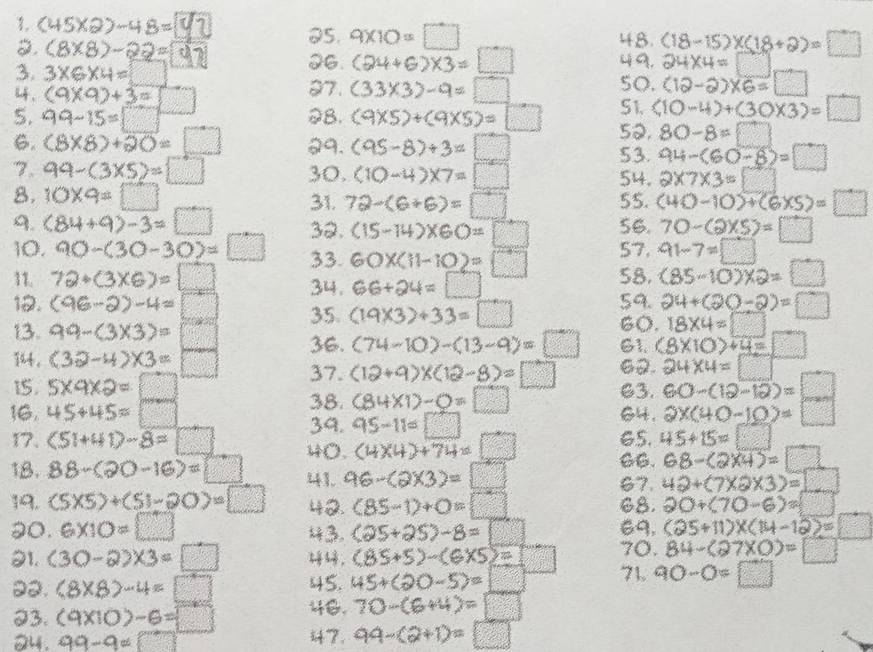 1. (45×2)-48= 42
2. (8×8)-22=
3. 3×6×4=
4. (9×9)+3=
5. 99-15=
6. (8×8)+20=
7. 99-(3×5)=
8. 10×9=
9. (84+9)-3=
10. 90-(30-30)=
11. 72+(3×6)=
12. (96-2)-4=
13. 99-(3×3)=
14. (32-4)×3=
15. 5×9×2=
16. 45+45=
17. (51+41)-8=
18. 88-(20-16)=
19. (5×5)+(51-20)=
20. 6×10=
21. (30-2)×3=
22. (8×8)-4=
23. (9×10)-6=
24. 99-9=
25. 9×10=
26. (24+6)×3=
27. (33×3)-9=
28. (9×5)+(9×5)=
29. (95-8)+3=
30. (10-4)×7=
31. 72-(6+6)=
32. (15-14)×60=
33. 60×(11-10)=
34. 66+24=
35. (19×3)+33=
36. (74-10)-(13-9)=
37. (12+9)×(12-8)=
38. (84×1)-0=
39. 95-11=
40. (4×4)+74=
41. 96-(2×3)=
42. (85-1)+0=
43. (25+25)-8=
44. (85+5)-(6×5)=
45. 45+(20-5)=
46. 70-(6+4)=
47. 99-(2+1)=
48. (18-15)×(18+2)=
49. 24×4=
50. (12-2)×6=
51. (10-4)+(30×3)=
52. 80-8=
53. 94-(60-8)=
54. 2×7×3=
55. (40-10)+(6×5)=
56. 70-(2×5)=
57. 91-7=
58. (85-10)×2=
59. 24+(20-2)=
60. 18×4=
61. (8×10)+4=
62. 24×4=
63. 60-(12-12)=
64. 2×(40-10)=
65. 45+15=
66. 68-(2×4)=
67. 42+(7×2×3)=
68. 20+(70-6)=
69. (25+11)×(14-12)=
70. 84-(27×0)=
71. 90-0=